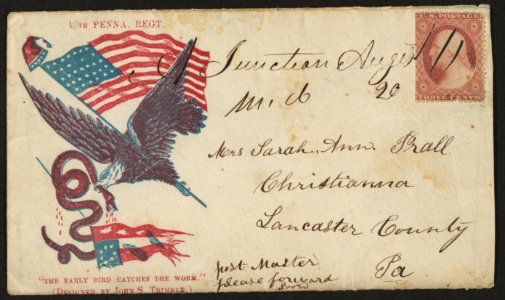 TH PENNA. REGT.
U.S. POSTAGE
THREE CENTS
Junction August 11
Md 20
Mrs Sarah Ann Prall
Christianna
Lancaster County
Pa
post Master
please forward
soon
"THE EARLY BIRD CATCHES THE WORM."
(DESIGNED BY JOHN S. TRIMBLE.)